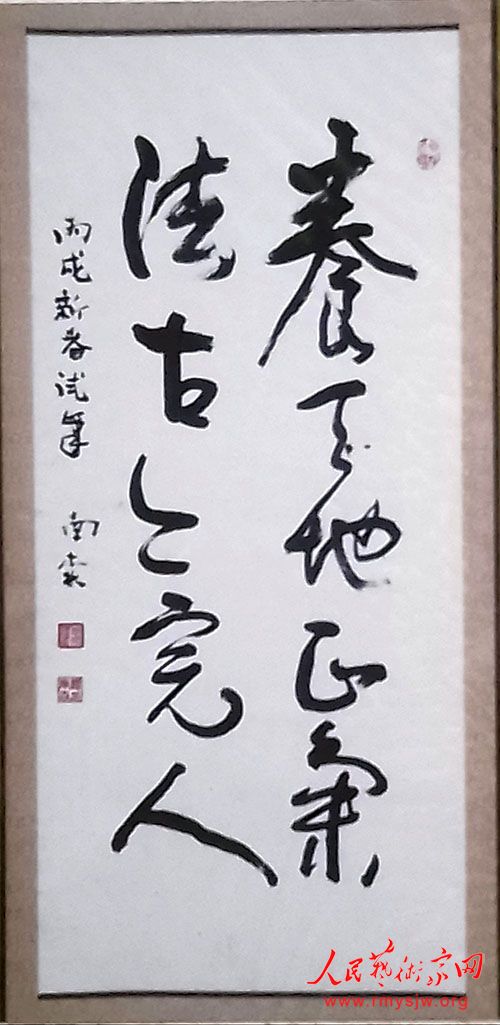 養天地正氣
法古今完人
丙戌新春试笔 南
人民藝術家网
www.rmysjw.org